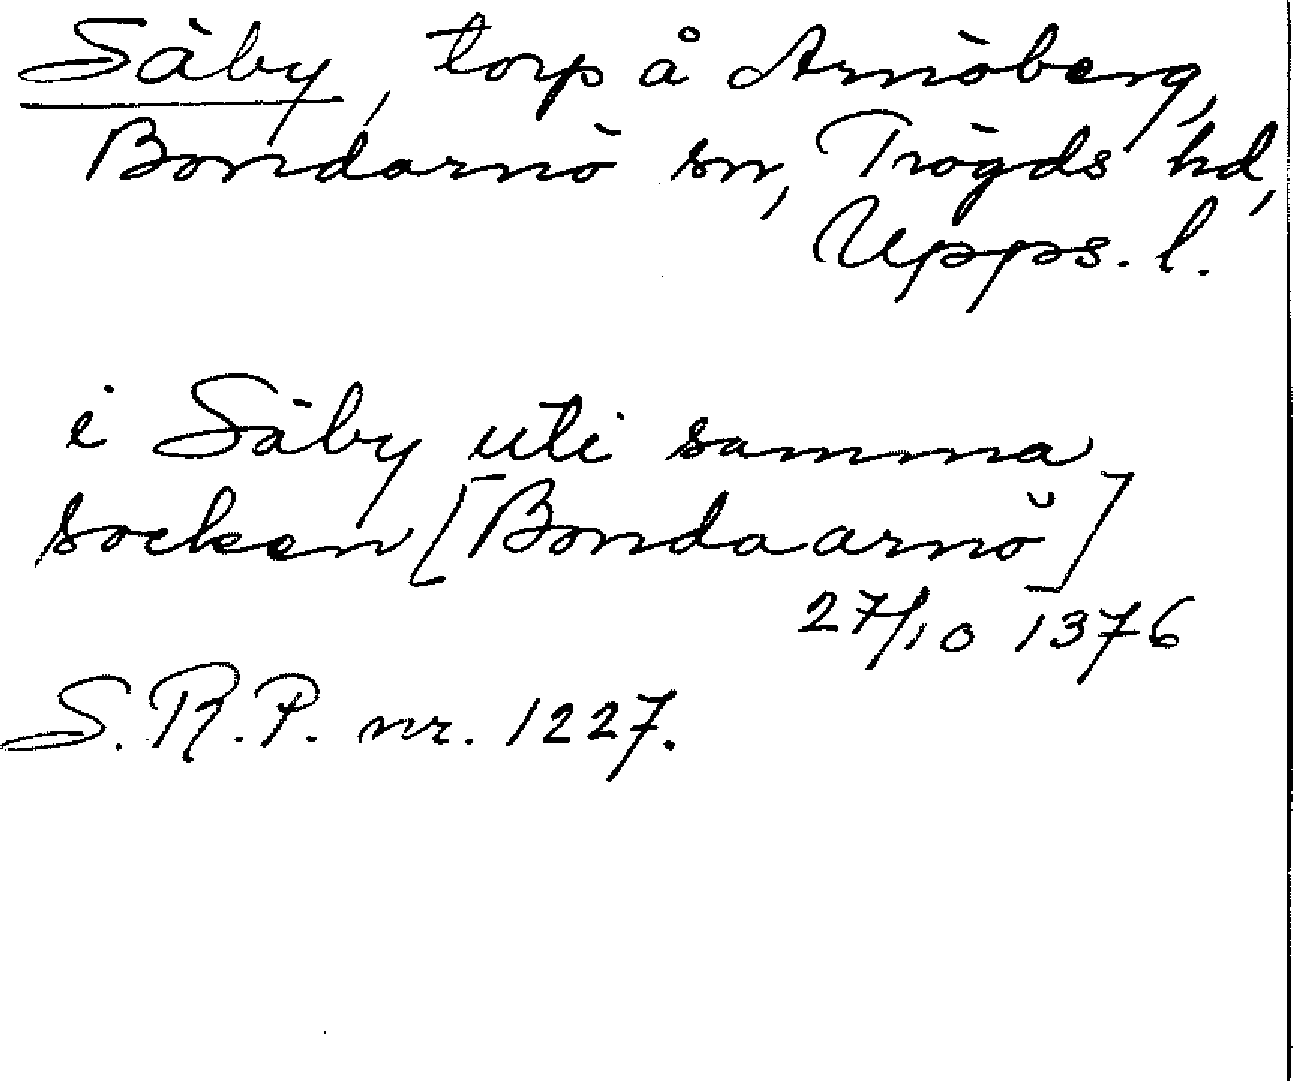 Säby, torp å Arnöberg,
Bondarnö sn, Trögds hd,
Upps. l.
i Säby uti samma
socken [Bondaarnö]
27/10 1376
S.R.P. nr. 1227.